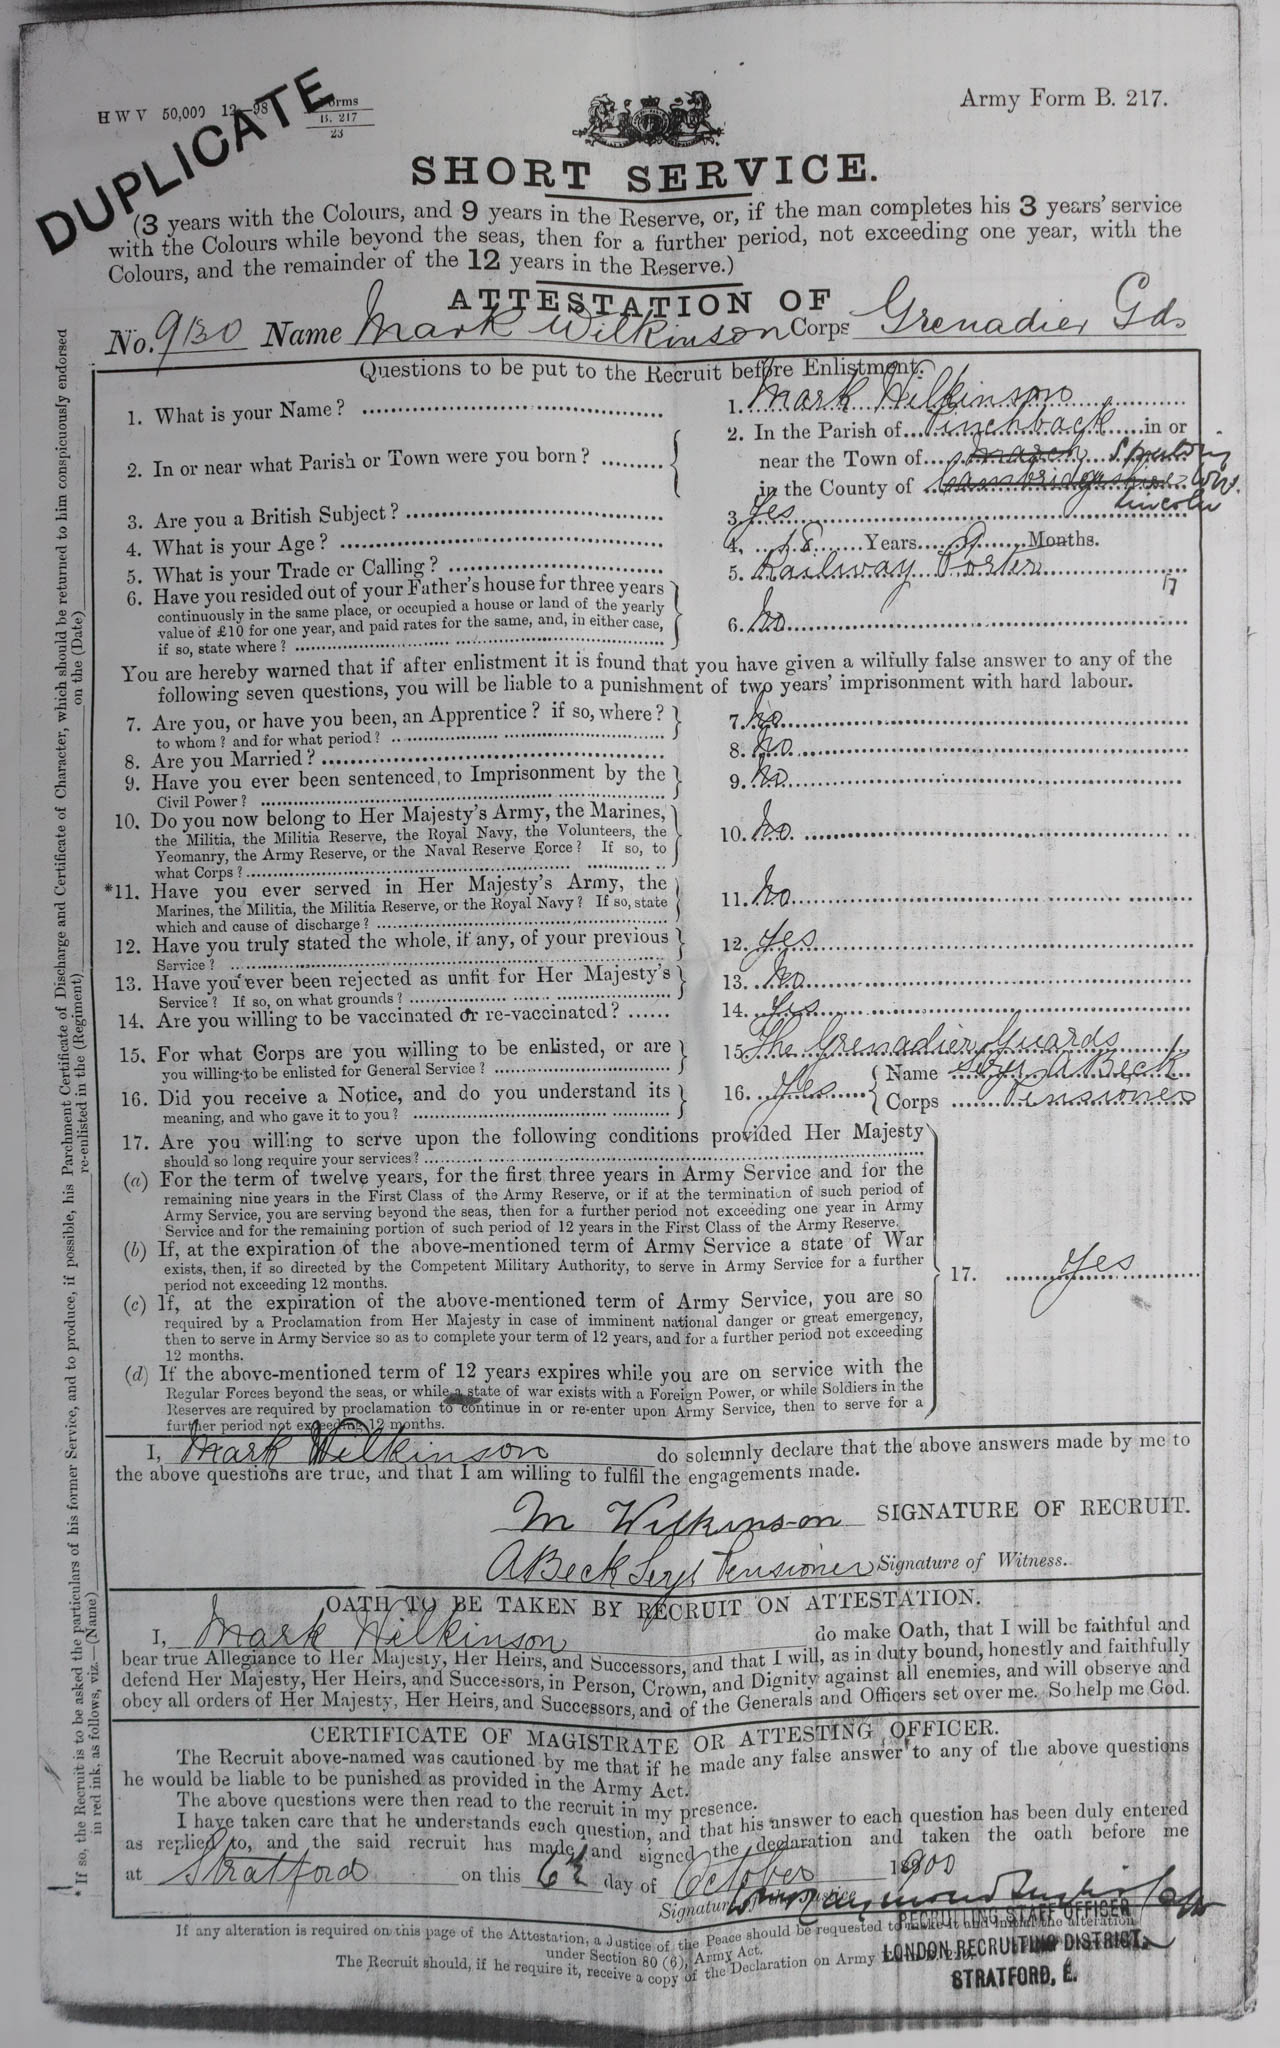 H W V 50,000 12—98 Forms
B. 217
23
DUPLICATE
Army Form B. 217.
SHORT SERVICE.
(3 years with the Colours, and 9 years in the Reserve, or, if the man completes his 3 years' service
with the Colours while beyond the seas, then for a further period, not exceeding one year, with the
Colours, and the remainder of the 12 years in the Reserve.)
ATTESTATION OF
No. 9130 Name Mark Wilkinson Corps Grenadier Gds
Questions to be put to the Recruit before Enlistment.
1. What is your Name? 1. Mark Wilkinson
2. In or near what Parish or Town were you born? 2. In the Parish of Pinchback in or
near the Town of March Spalding
in the County of Cambridgeshire
Lincoln
3. Are you a British Subject? 3. Yes
4. What is your Age? 4. 18 Years 9 Months.
5. What is your Trade or Calling? 5. Railway Porter
17
6. Have you resided out of your Father's house for three years
continuously in the same place, or occupied a house or land of the yearly
value of £10 for one year, and paid rates for the same, and, in either case,
if so, state where? 6. No
You are hereby warned that if after enlistment it is found that you have given a wilfully false answer to any of the
following seven questions, you will be liable to a punishment of two years' imprisonment with hard labour.
7. Are you, or have you been, an Apprentice? if so, where?
to whom? and for what period? 7. No
8. Are you Married? 8. No
9. Have you ever been sentenced to Imprisonment by the
Civil Power? 9. No
10. Do you now belong to Her Majesty's Army, the Marines,
the Militia, the Militia Reserve, the Royal Navy, the Volunteers, the
Yeomanry, the Army Reserve, or the Naval Reserve Force? If so, to
what Corps? 10. No
*11. Have you ever served in Her Majesty's Army, the
Marines, the Militia, the Militia Reserve, or the Royal Navy? If so, state
which and cause of discharge? 11. No
12. Have you truly stated the whole, if any, of your previous
Service? 12. Yes
13. Have you ever been rejected as unfit for Her Majesty's
Service? If so, on what grounds? 13. No
14. Are you willing to be vaccinated or re-vaccinated? 14. Yes
15. For what Corps are you willing to be enlisted, or are
you willing to be enlisted for General Service? 15. The Grenadier Guards
16. Did you receive a Notice, and do you understand its
meaning, and who gave it to you? 16. Yes Name Sergt A Beck
Corps Pensioner
17. Are you willing to serve upon the following conditions provided Her Majesty
should so long require your services?
(a) For the term of twelve years, for the first three years in Army Service and for the
remaining nine years in the First Class of the Army Reserve, or if at the termination of such period of
Army Service, you are serving beyond the seas, then for a further period not exceeding one year in Army
Service and for the remaining portion of such period of 12 years in the First Class of the Army Reserve.
(b) If, at the expiration of the above-mentioned term of Army Service a state of War
exists, then, if so directed by the Competent Military Authority, to serve in Army Service for a further
period not exceeding 12 months.
17. Yes
(c) If, at the expiration of the above-mentioned term of Army Service, you are so
required by a Proclamation from Her Majesty in case of imminent national danger or great emergency,
then to serve in Army Service so as to complete your term of 12 years, and for a further period not exceeding
12 months.
(d) If the above-mentioned term of 12 years expires while you are on service with the
Regular Forces beyond the seas, or while a state of war exists with a Foreign Power, or while Soldiers in the
Reserves are required by proclamation to continue in or re-enter upon Army Service, then to serve for a
further period not exceeding 12 months.
I, Mark Wilkinson do solemnly declare that the above answers made by me to
the above questions are true, and that I am willing to fulfil the engagements made.
M Wilkinson SIGNATURE OF RECRUIT.
A Beck Sergt Pensioner Signature of Witness.
OATH TO BE TAKEN BY RECRUIT ON ATTESTATION.
I, Mark Wilkinson do make Oath, that I will be faithful and
bear true Allegiance to Her Majesty, Her Heirs, and Successors, and that I will, as in duty bound, honestly and faithfully
defend Her Majesty, Her Heirs, and Successors, in Person, Crown, and Dignity against all enemies, and will observe and
obey all orders of Her Majesty, Her Heirs, and Successors, and of the Generals and Officers set over me. So help me God.
CERTIFICATE OF MAGISTRATE OR ATTESTING OFFICER.
The Recruit above-named was cautioned by me that if he made any false answer to any of the above questions
he would be liable to be punished as provided in the Army Act.
The above questions were then read to the recruit in my presence.
I have taken care that he understands each question, and that his answer to each question has been duly entered
as replied to, and the said recruit has made and signed the declaration and taken the oath before me
at Stratford on this 6th day of October 1900
Signature
RECRUITING STAFF OFFICER
LONDON RECRUITING DISTRICT,
STRATFORD, E.
If any alteration is required on this page of the Attestation, a Justice of the Peace should be requested to make it and initial the alteration
under Section 80 (6), Army Act.
The Recruit should, if he require it, receive a copy of the Declaration on Army
* If so, the Recruit is to be asked the particulars of his former Service, and to produce, if possible, his Parchment Certificate of Discharge and Certificate of Character, which should be returned to him conspicuously endorsed
in red ink, as follows, viz.—(Name) re-enlisted in the (Regiment) on the (Date)